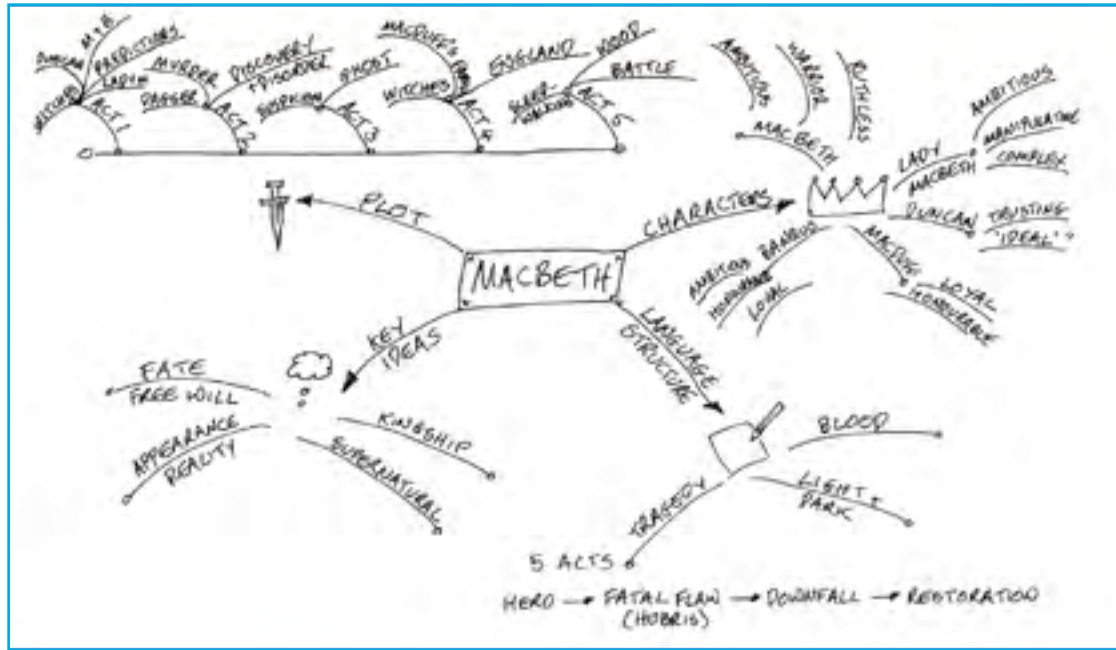 WITCHES
DUNCAN
M+B
PREDICTIONS
LADY M
ACT 1
DAGGER
MURDER
DISCOVERY
+ DISORDER
ACT 2
SUSPICION
GHOST
ACT 3
WITCHES
MACDUFF'S
ENGLAND
ACT 4
SLEEP-
WALKING
WOOD
BATTLE
ACT 5
PLOT
MACBETH
CHARACTERS
MACBETH
AMBITIOUS
WARRIOR
RUTHLESS
LADY
MACBETH
AMBITIOUS
MANIPULATIVE
COMPLEX
DUNCAN
TRUSTING
"IDEAL"
MACDUFF
LOYAL
HONOURABLE
BANQUO
AMBITIOUS
HONOURABLE
LOYAL
KEY
IDEAS
FATE
FREE WILL
APPEARANCE
REALITY
KINGSHIP
SUPERNATURAL
LANGUAGE
STRUCTURE
BLOOD
LIGHT +
DARK
TRAGEDY
5 ACTS
HERO → FATAL FLAW → DOWNFALL → RESTORATION
(HUBRIS)